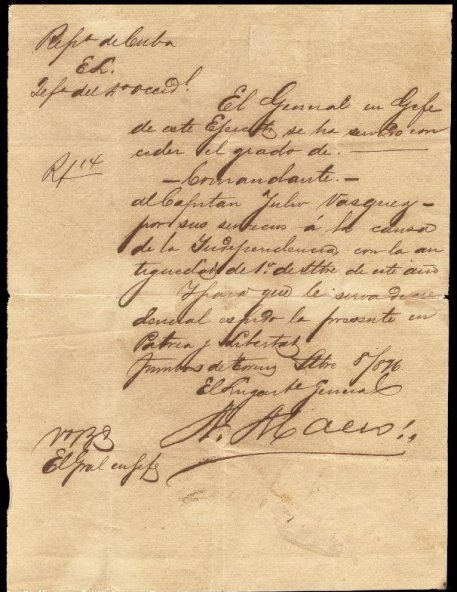 Repª de Cuba
E. L.
del
El General en Gefe
de este Ejercito se ha servido con
ceder el grado de.
Rf 14
- Comandante. -
al Capitan Julio Vasquez -
por sus servicios á la causa
de la Independencia con la an
tiguedad de 1º de Stbre de este año
Y para que le sirva de cre
dencial espido la presente en
Patria y Libertad
Stbre 8/896.
El Lugarte General
A. Maceo
Vº Bº
El Gral en Gefe